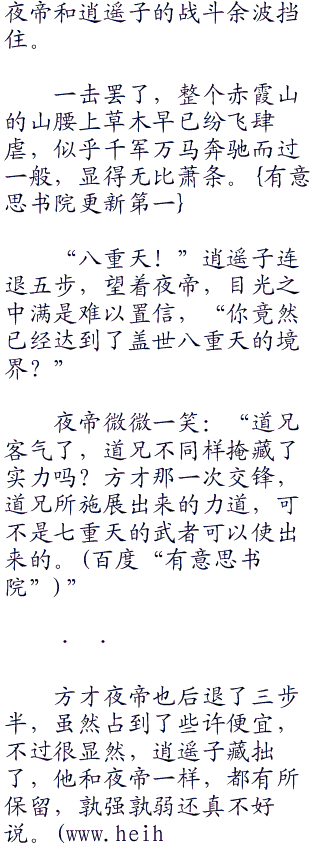 夜帝和逍遥子的战斗余波挡
住。
一击罢了，整个赤霞山
的山腰上草木早已纷飞肆
虐，似乎千军万马奔驰而过
一般，显得无比萧条。{有意
思书院更新第一}
“八重天！”逍遥子连
退五步，望着夜帝，目光之
中满是难以置信，“你竟然
已经达到了盖世八重天的境
界？”
夜帝微微一笑：“道兄
客气了，道兄不同样掩藏了
实力吗？方才那一次交锋，
道兄所施展出来的力道，可
不是七重天的武者可以使出
来的。(百度“有意思书
院”)”
. .
方才夜帝也后退了三步
半，虽然占到了些许便宜，
不过很显然，逍遥子藏拙
了，他和夜帝一样，都有所
保留，孰强孰弱还真不好
说。(www.heih